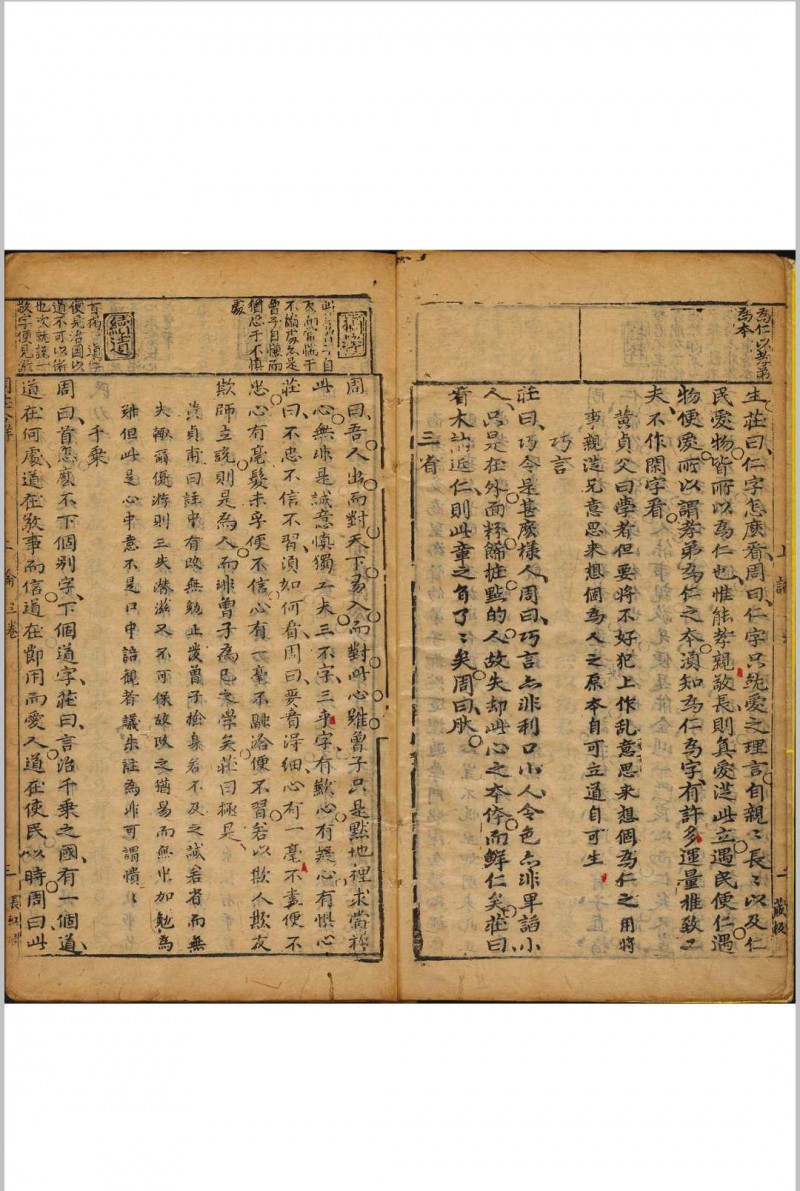 為仁以孝弟
為本
生莊曰仁字怎麼看周曰仁字只就愛之理言自親二長二以及仁
民愛物皆所以為仁也惟能孝親敬長則真愛從此立遇民便仁遇
物便愛所以謂孝弟為仁之本須知為仁為字有許多運量推致工
夫不作閑字看
黃貞父曰學者但要將不好犯上作乱意思來想個為仁之用將
事親從兄意思來想個為人之原本自可立道自可生
巧言
莊曰巧令是甚麼樣人周曰巧言亦非利口小人令色亦非卑謟小
人只是在外面粉餙粧點的人故失却此心之本体而鮮仁矣莊曰
看木訥近仁則此章之旨了二矣周曰肰
三省
周曰吾人出而對天下易入而對此心難曾子只是點地裡求當祢
此心無非是誠意慎獨工夫三不字三乎字有歉心有疑心有惧心
莊曰不忠不信不習須如何看周曰要看得細心有一毫不盡便不
忠心有毫髮未孚便不信心有一毫不融洽便不習若以欺人欺友
欺師立說則是為人而非曾子為已之學矣莊曰極是
黃貞甫曰註中有改無勉止從曾子檢身若不及之誠若省而無
失輙爾優游則三失漸滋又不可保故改之猶易而無非加勉為
難但此是心中意不是口中語観者議朱註為非可謂憒二
千乘
周曰首怎麼不下個别字下個道字莊曰言治千乘之國有一個道
道在何處道在敬事而信道在節用而愛人道在使民以時周曰此